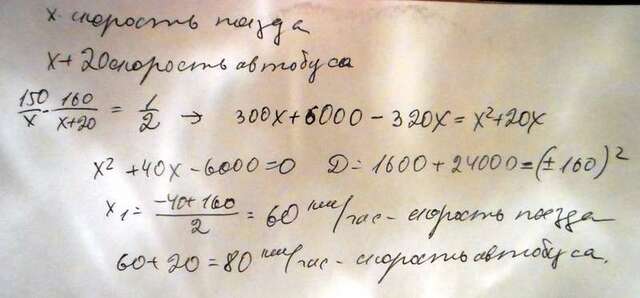 x - скорость поезда
x + 20 скорость автобуса
150/x - 160/(x+20) = 1/2 → 300x + 6000 - 320x = x² + 20x
x² + 40x - 6000 = 0 D = 1600 + 24000 = (±160)²
x₁ = (-40 + 160)/2 = 60 км/час - скорость поезда
60 + 20 = 80 км/час - скорость автобуса.